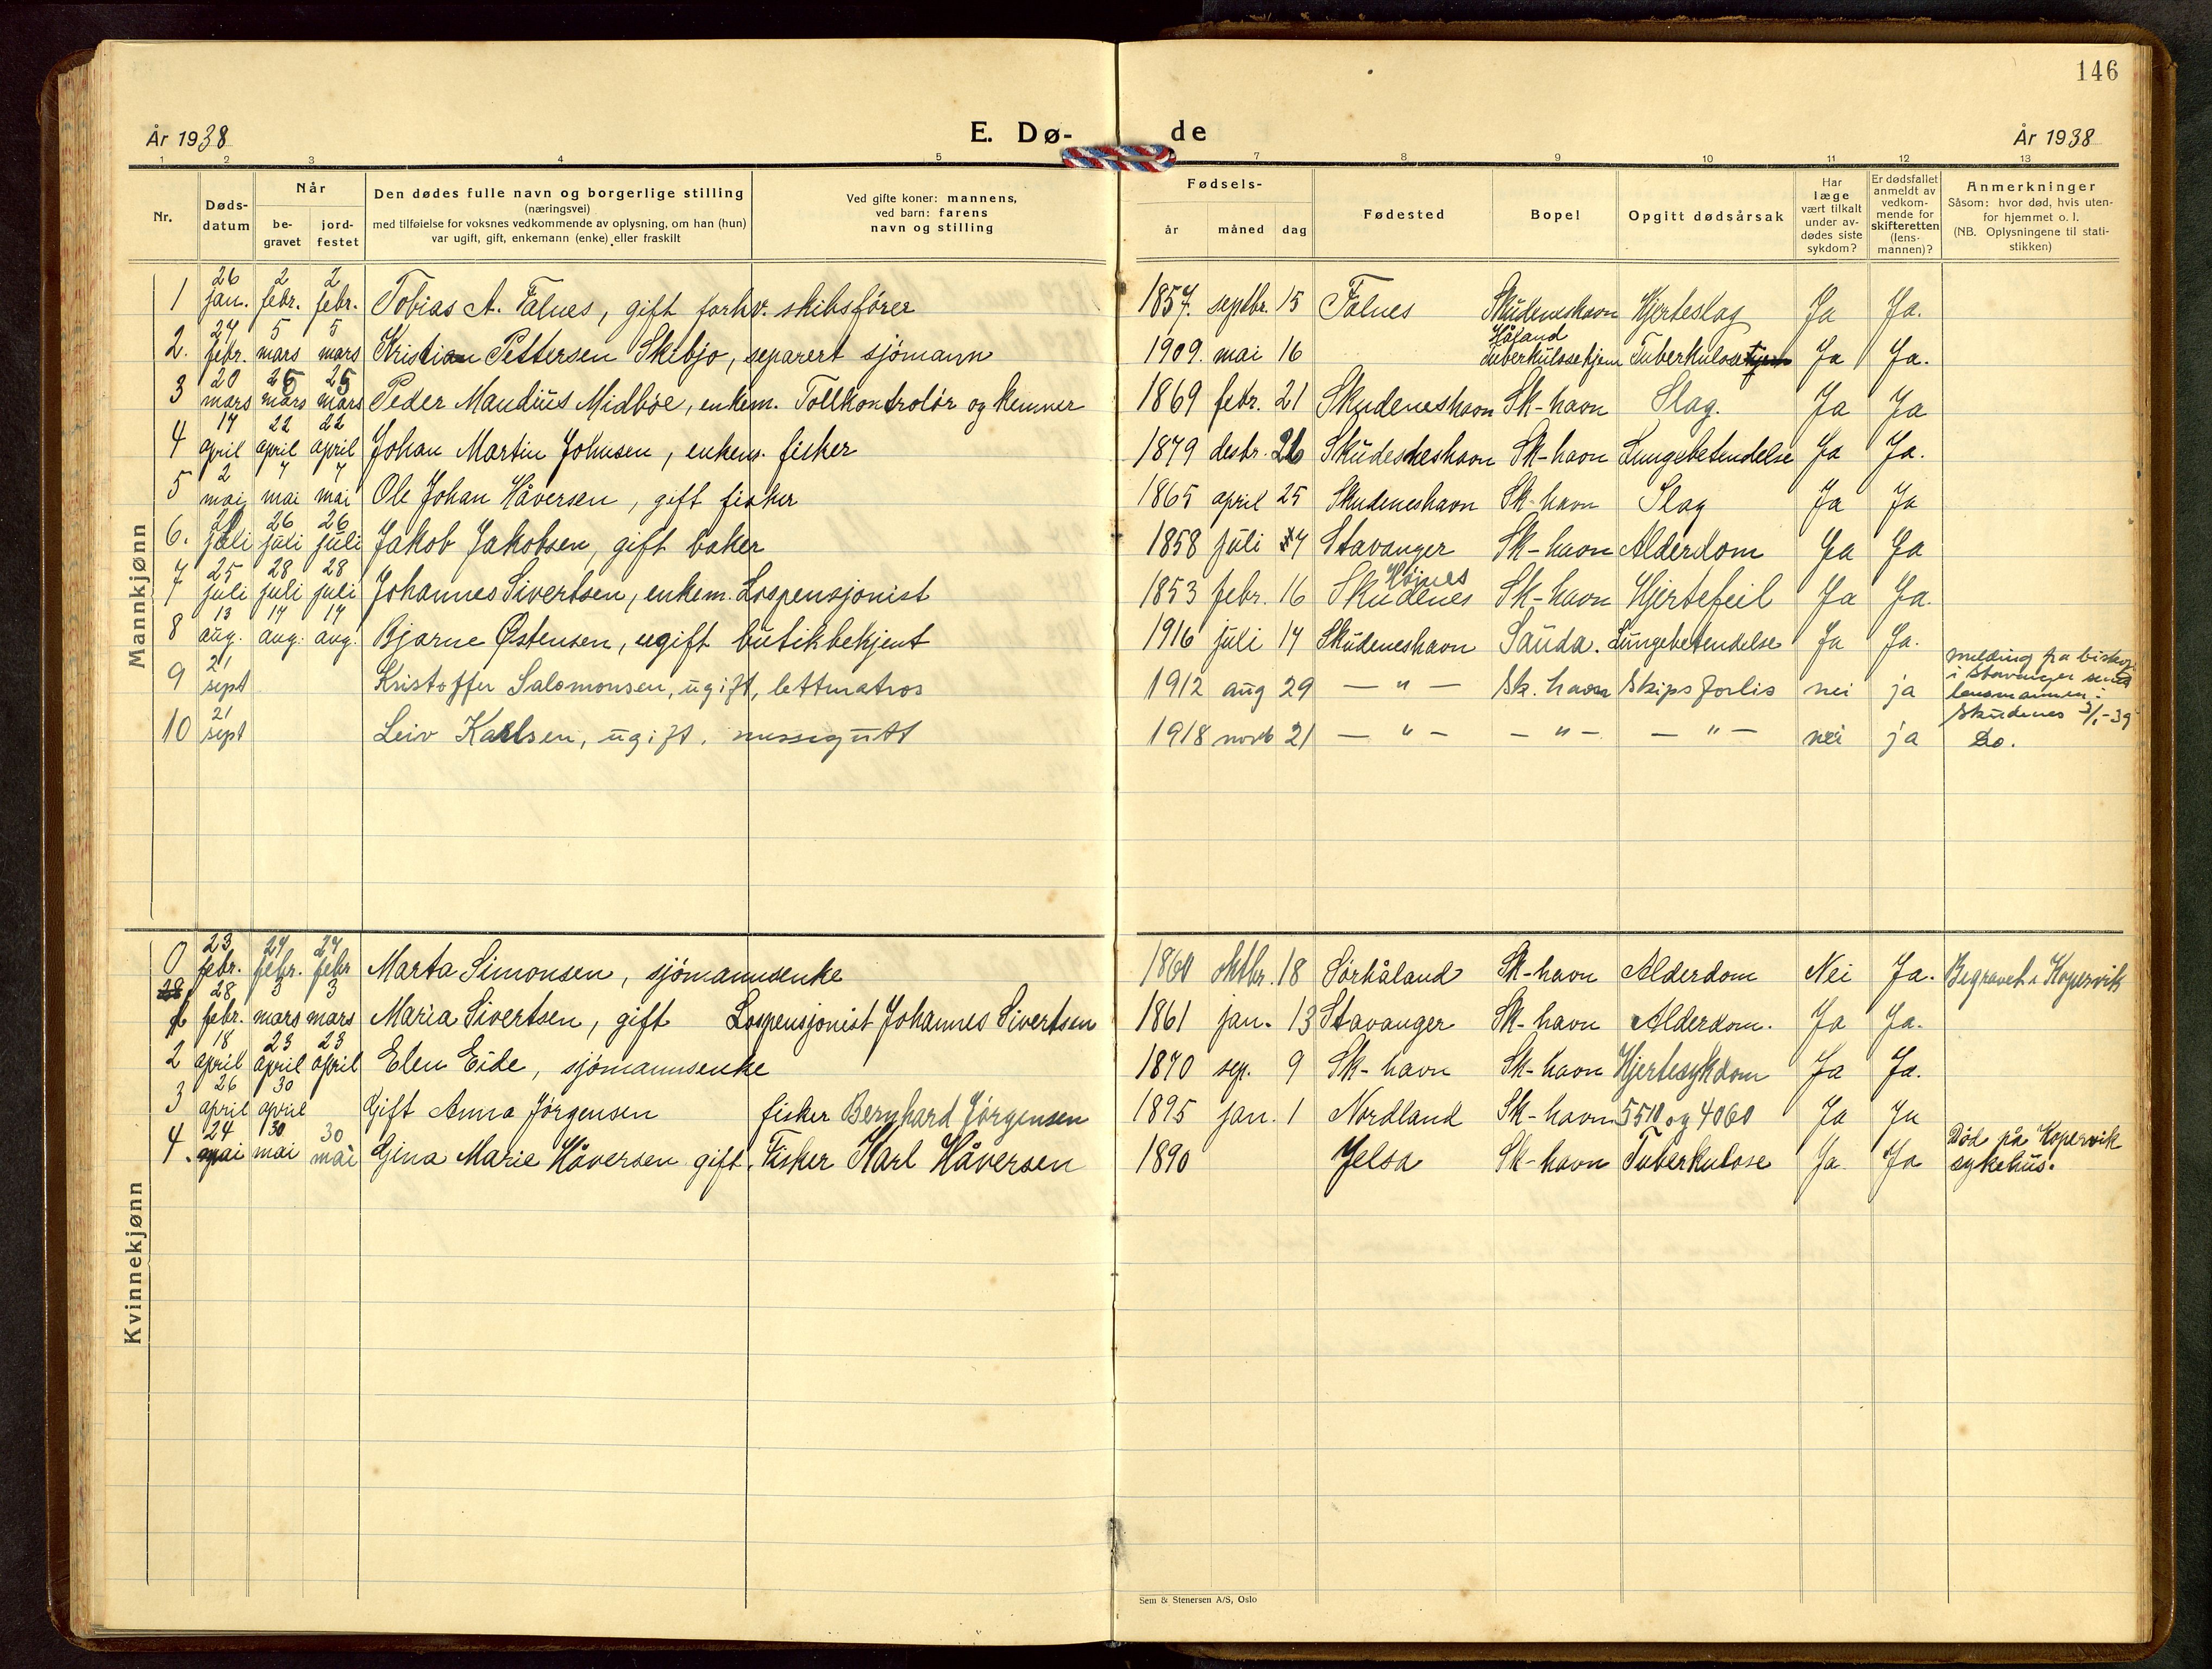 146
År 1938
E. Dø-
de
År 1938
1 2 3 4 5 7 8 9 10 11 12 13
Nr.
Døds-
datum
Når
be-
gravet
jord-
festet
Den dødes fulle navn og borgerlige stilling
(næringsvei)
med tilføielse for voksnes vedkommende av oplysning, om han (hun)
var ugift, gift, enkemann (enke) eller fraskilt
Ved gifte koner: mannens,
ved barn: farens
navn og stilling
Fødsels-
år måned dag
Fødested
Bopel
Opgitt dødsårsak
Har
læge
vært tilkalt
under av-
dødes siste
sykdom?
Er dødsfallet
anmeldt av
vedkom-
mende for
skifteretten
(lens-
mannen)?
Anmerkninger
Såsom: hvor død, hvis uten-
for hjemmet o. l.
(NB. Oplysningene til stati-
stikken)
Mannkjønn
1 26 jan. 2 febr. 2 febr. Tobias A. Falnes, gift forhv. skibsfører 1857. septbr. 15 Falnes Skudeneshavn Hjerteslag Ja Ja.
2. 27 febr. 5 mars 5 mars Kristian Pettersen Skibjo, separert sjömann 1909. mai 16 Håland tuberkulosehjem Tuberkulose Ja Ja.
3 20 mars 25 mars 25 mars Peder Maudius Midböe, enkem. Tollkontrolör og kemner 1869 febr. 21 Skudeneshavn Sk-havn Slag. Ja Ja
4 17 april 22 april 22 april Johan Martin Johnsen, enkem. fisker 1879 desbr. 26 Skudesneshavn Sk-havn Lungebetendelse Ja Ja.
5 2 mai 7 mai 7 mai Ole Johan Håversen, gift fisker 1865 april 25 Skudeneshavn Sk-havn Slag Ja Ja
6. juli 26 juli 26 juli Jakob Jakobsen, gift baker 1858 juli Stavanger Sk-havn Alderdom Ja Ja
7 25 juli 28 juli 28 juli Johannes Sivertsen, enkem. Lospensjonist 1853 febr. 16 Høines Skudenes Sk-havn Hjertefeil Ja Ja.
8 13 aug. 17 aug. 17 aug. Bjarne Østensen, ugift butikbetjent 1916 juli 14 Skudeneshavn Sauda. Lungebetendelse Ja Ja.
9 21 sept Kristoffer Salomonsen, ugift, lettmatros 1912 aug 29 — " — Sk. havn Skipsforlis nei ja melding fra biskop
i Stavanger send
lensmannen i
Skudenes 3/1-39
10 21 sept Leiv Karlsen, ugift, messegutt 1918 novb 21 — " — — " — — " — nei ja Do.
Kvinnekjønn
0 23 febr. 27 febr. 27 febr Marta Simonsen, sjömannsenke 1860 oktbr. 18 Sörhåland Sk-havn Alderdom Nei Ja. Begravet i Kopervik
1 28 febr. 3 mars 3 mars Maria Sivertsen, gift Lospensjonist Johannes Sivertsen 1861 jan. 13 Stavanger Sk-havn Alderdom. Ja Ja.
2 18 april 23 april 23 april Elen Eide, sjömannsenke 1870 sep. 9 Sk-havn Sk-havn Hjertesykdom Ja Ja.
3 26 april 30 april Gift Anna Jörgensen fisker Bernhard Jörgensen 1895 jan. 1 Nordland Sk-havn 5510 og 4060 Ja Ja
4. 24 mai 30 mai 30 mai Gina Marie Håversen gift. Fisker Karl Håversen 1890 Jelsa Sk-havn Tuberkulose Ja Ja Död på Kopervik
sykehus.
Sem & Stenersen A/S, Oslo